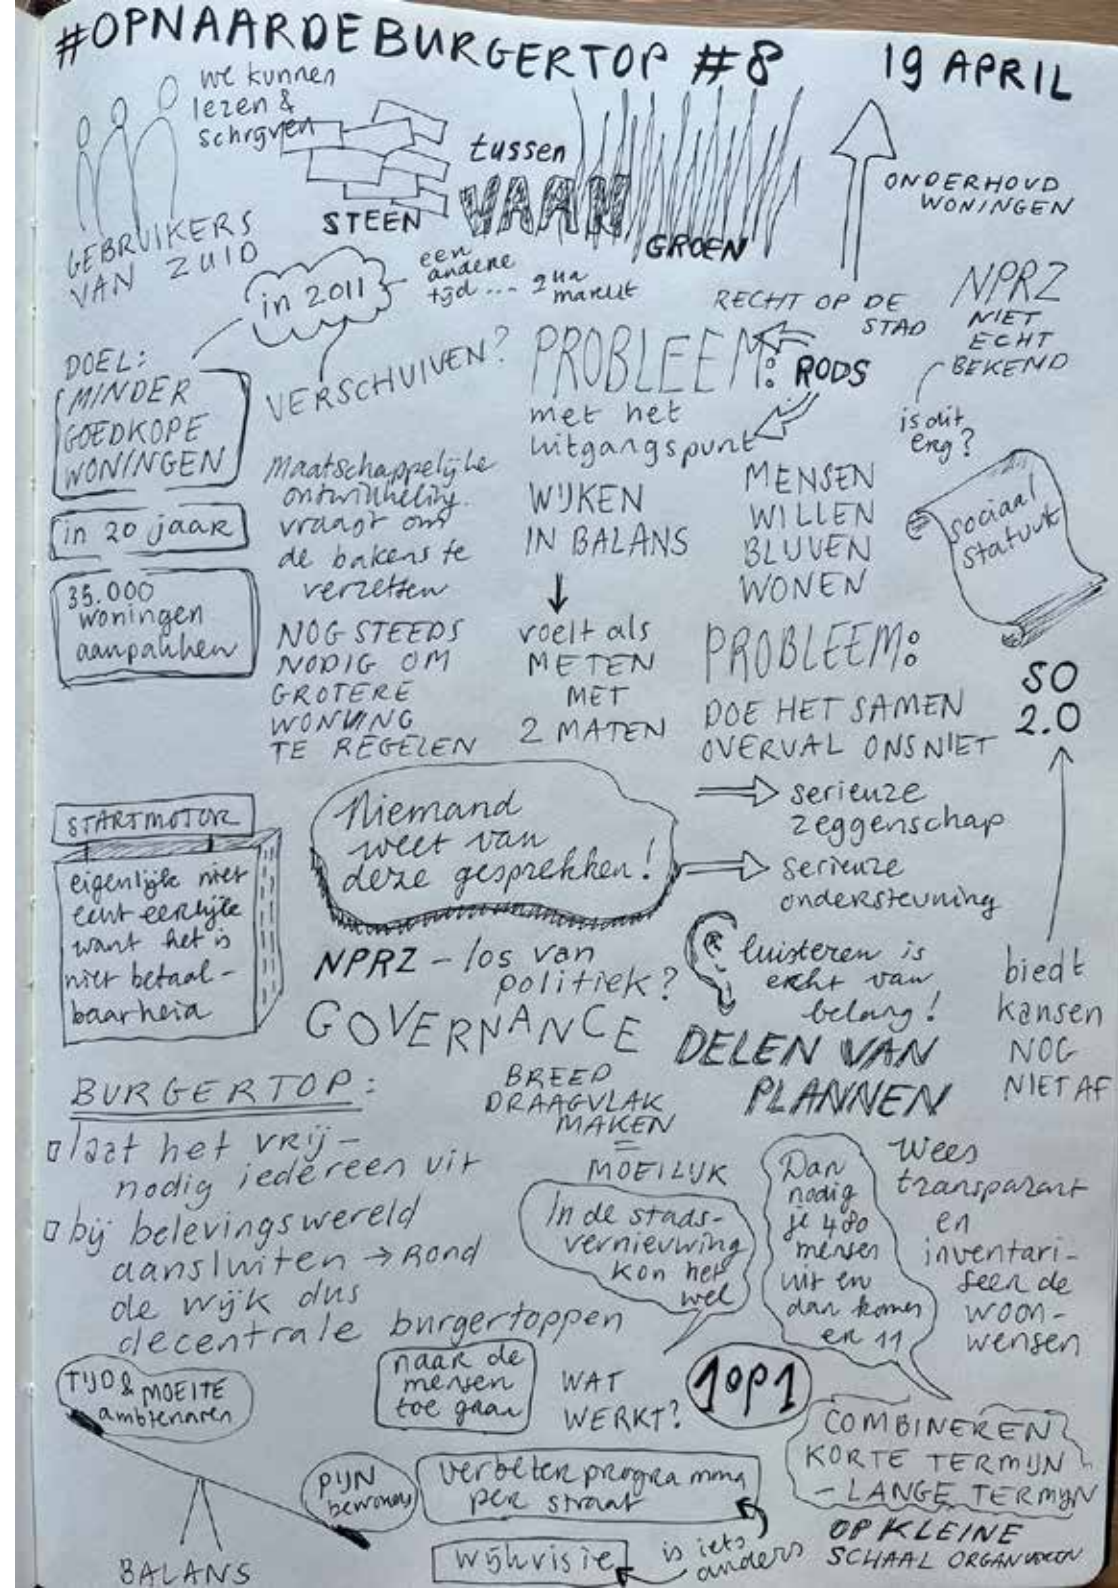 #OPNAARDEBURGERTOP #8
19 APRIL
we kunnen
lezen &
schrijven
GEBRUIKERS
VAN ZUID
STEEN
tussen
VAAN
GROEN
ONDERHOUD
WONINGEN
in 2011
een
andere
tijd... qua
markt
RECHT OP DE
STAD
NPRZ
NIET
ECHT
BEKEND
is dit
erg?
DOEL:
MINDER
GOEDKOPE
WONINGEN
in 20 jaar
35.000
woningen
aanpakken
VERSCHUIVEN?
Maatschappelijke
ontwikkeling
vraagt om
de bakens te
verzetten
NOG STEEDS
NODIG OM
GROTERE
WONING
TE REGELEN
PROBLEEM:
RODS
met het
uitgangspunt
WIJKEN
IN BALANS
voelt als
METEN
MET
2 MATEN
MENSEN
WILLEN
BLIJVEN
WONEN
sociaal
statuut
PROBLEEM:
DOE HET SAMEN
OVERVAL ONS NIET
SO
2.0
serieuze
zeggenschap
serieuze
ondersteuning
biedt
kansen
NOG
NIET AF
STARTMOTOR
eigenlijk niet
echt eerlijk
want het is
niet betaal-
baarheid
Niemand
weet van
deze gesprekken!
NPRZ - los van
politiek?
GOVERNANCE
luisteren is
echt van
belang!
DELEN VAN
PLANNEN
BREED
DRAAGVLAK
MAKEN
=
MOEILIJK
BURGERTOP:
laat het vrij -
nodig iedereen uit
bij belevingswereld
aansluiten → Rond
de wijk dus
decentrale burgertoppen
In de stads-
vernieuwing
kon het
wel
Dan
nodig
je 480
mensen
uit en
dan komen
er 11
Wees
transparant
en
inventari-
seer de
woon-
wensen
TIJD & MOEITE
ambtenaren
PIJN
bewoners
BALANS
naar de
mensen
toe gaan
WAT
WERKT?
1op1
verbeterprogramma
per straat
wijkvisie
is iets
anders
COMBINEREN
KORTE TERMIJN
- LANGE TERMIJN
OP KLEINE
SCHAAL ORGANISEREN